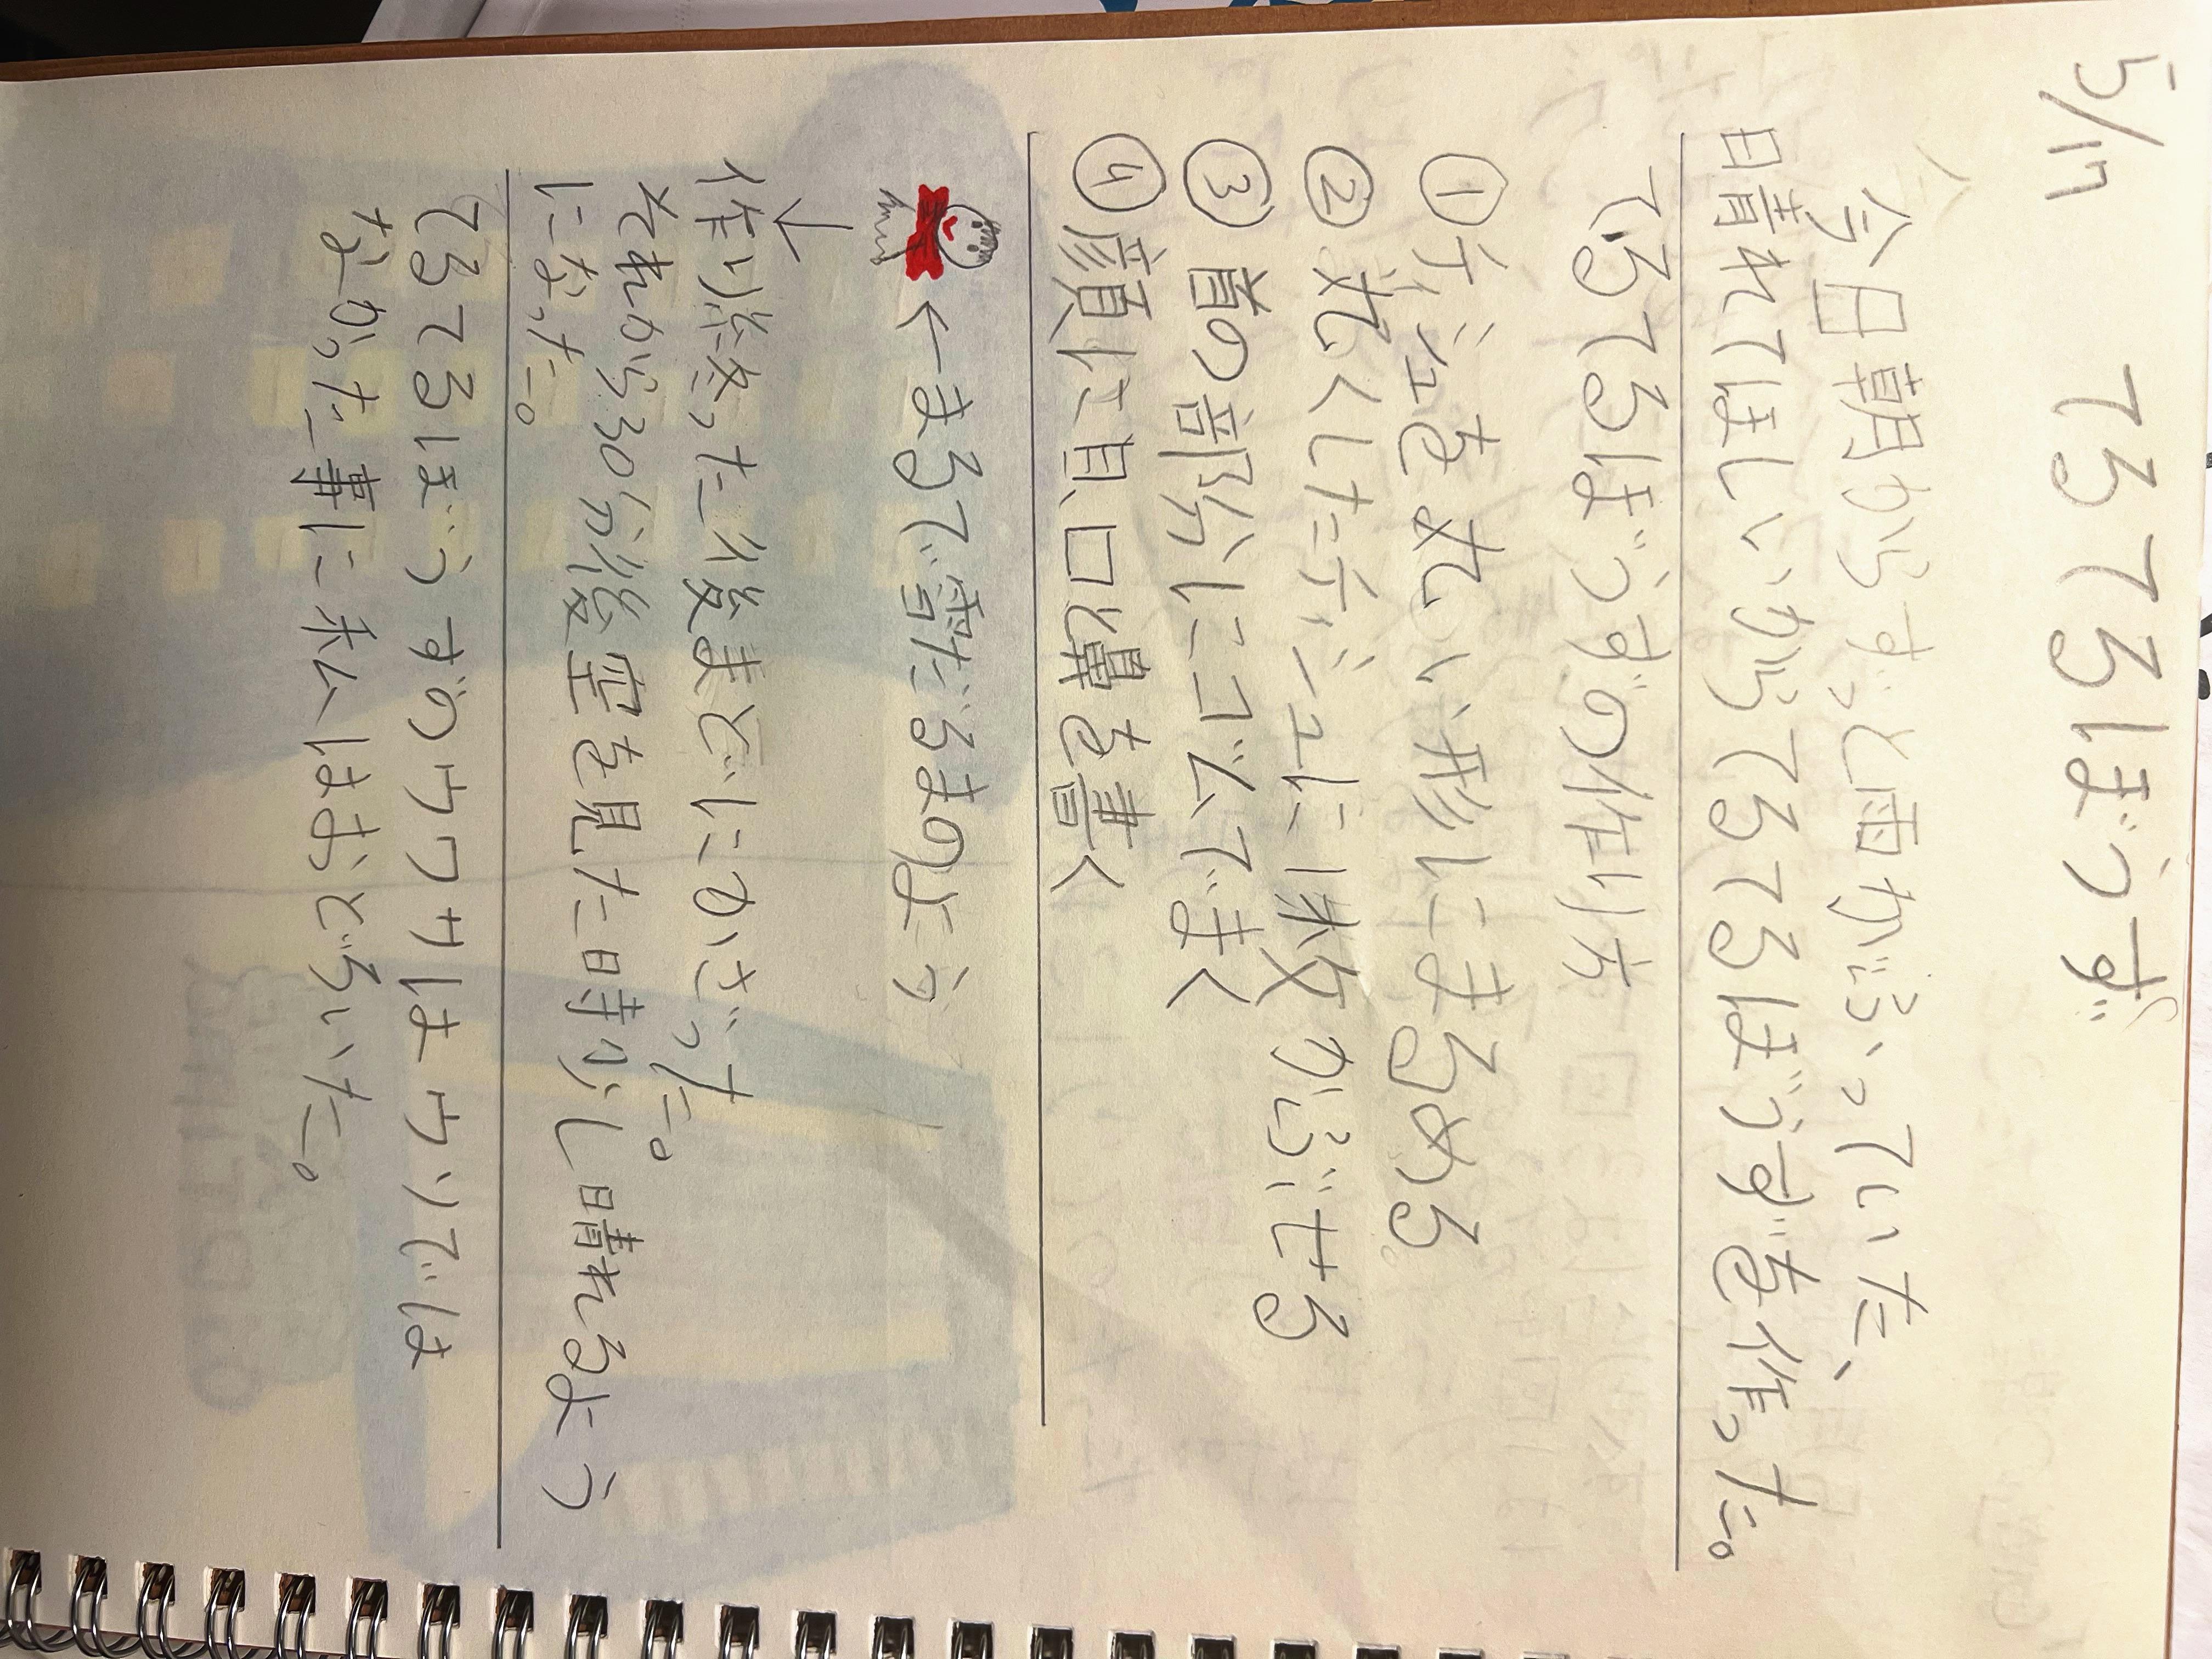 5/17 てるてるぼうず
今日朝からずっと雨がふっていた、
晴れてほしいからてるてるぼうずを作った。
てるてるぼうずの作り方
①ティシュを丸い形にまるめる
②丸くしたティシュに1枚かぶせる
③首の部分にゴムでまく
④顔に目口鼻を書く
←まるで雪だるまのよう
↓
作り終った後まどにかざった。
それから30分後空を見た時少し晴れるよう
になった。
てるてるぼうずのウワサはウソでは
なかった事に私はおどろいた。